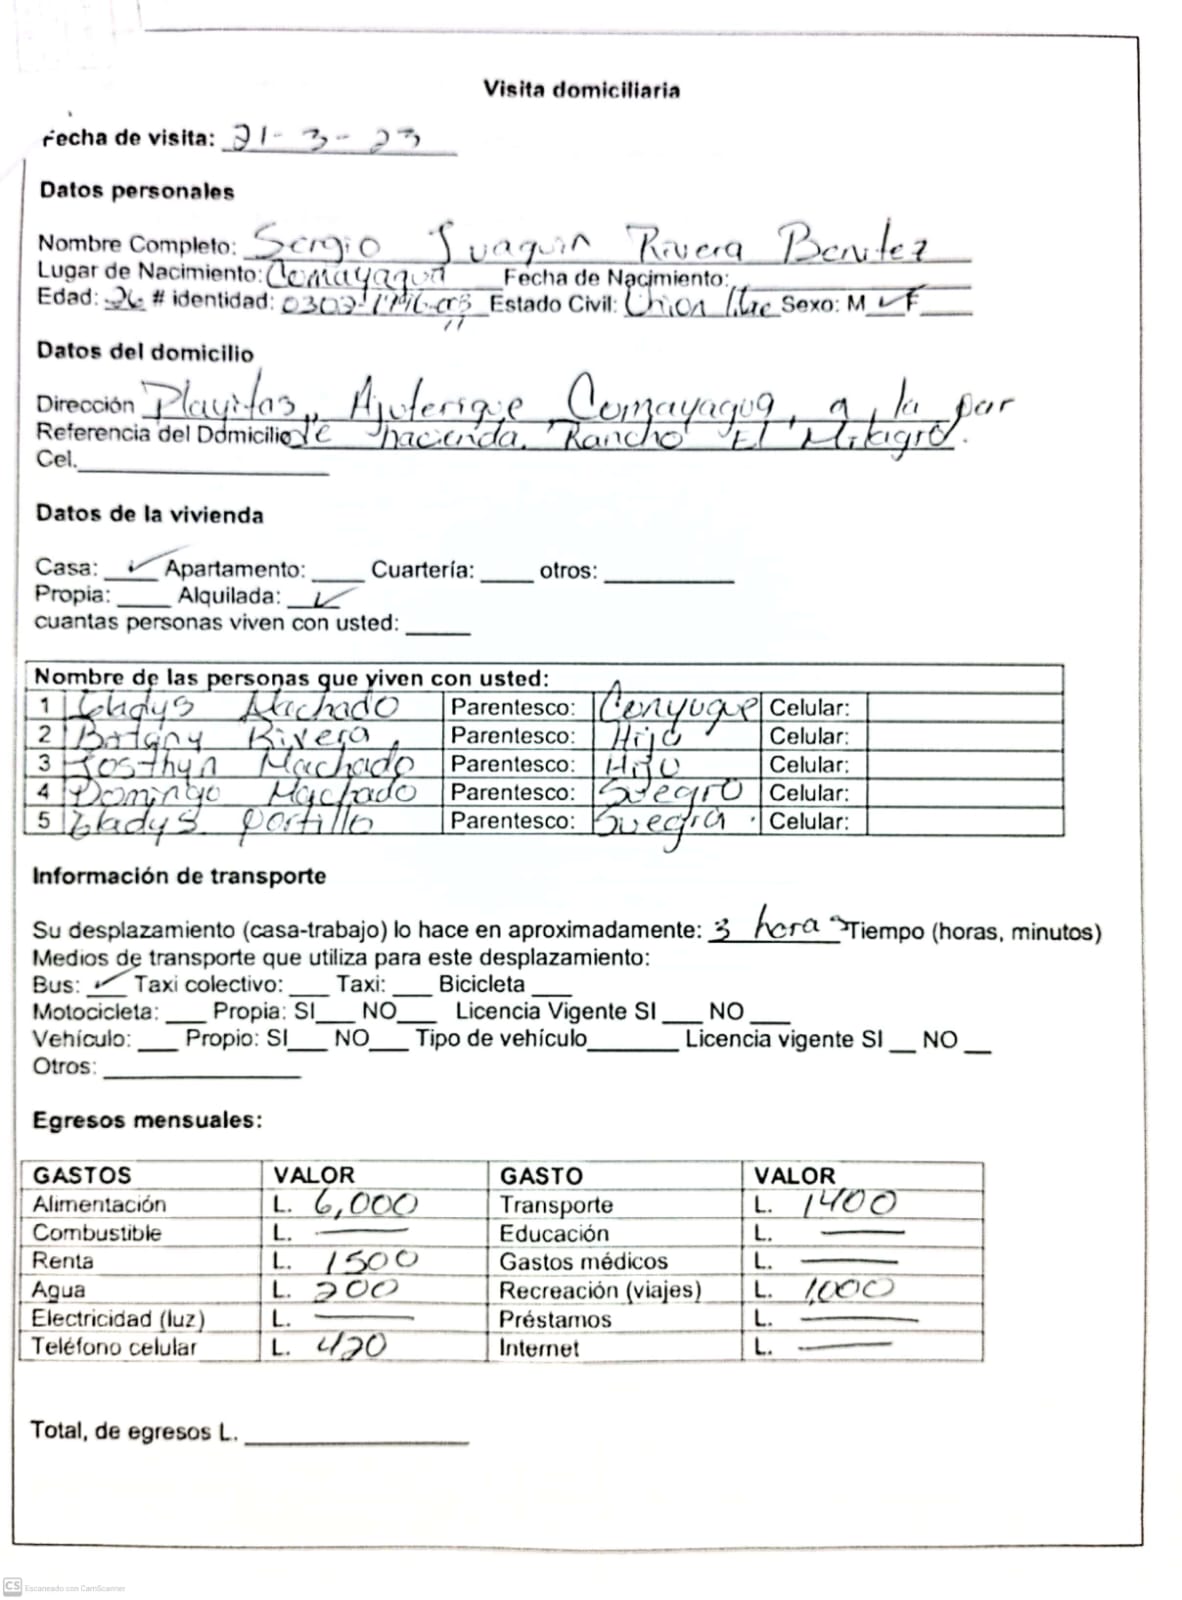 Visita domiciliaria
Fecha de visita: 21-3-23
Datos personales
Nombre Completo: Sergio Juaquin Rivera Benitez
Lugar de Nacimiento: Comayagua Fecha de Nacimiento:
Edad: 26 # identidad: 0302- Estado Civil: Union libre Sexo: M ✓ F
Datos del domicilio
Dirección Playitas, Ajuterique, Comayagua, a la par
Referencia del Domicilio de hacienda Rancho El Milagro.
Cel.
Datos de la vivienda
Casa: ✓ Apartamento: Cuartería: otros:
Propia: Alquilada: ✓
cuantas personas viven con usted:
Nombre de las personas que viven con usted:
1 Gladys Machado Parentesco: Conyugue Celular:
2 Rivera Parentesco: Hijo Celular:
3 Josthyn Machado Parentesco: Hijo Celular:
4 Domingo Machado Parentesco: Suegro Celular:
5 Gladys Portillo Parentesco: Suegra Celular:
Información de transporte
Su desplazamiento (casa-trabajo) lo hace en aproximadamente: 3 horas Tiempo (horas, minutos)
Medios de transporte que utiliza para este desplazamiento:
Bus: ✓ Taxi colectivo: Taxi: Bicicleta
Motocicleta: Propia: SI NO Licencia Vigente SI NO
Vehículo: Propio: SI NO Tipo de vehículo Licencia vigente SI NO
Otros:
Egresos mensuales:
GASTOS VALOR GASTO VALOR
Alimentación L. 6,000 Transporte L. 1400
Combustible L. — Educación L. —
Renta L. 1500 Gastos médicos L. —
Agua L. 200 Recreación (viajes) L. 1,000
Electricidad (luz) L. — Préstamos L. —
Teléfono celular L. 420 Internet L. —
Total, de egresos L.
CS Escaneado con CamScanner